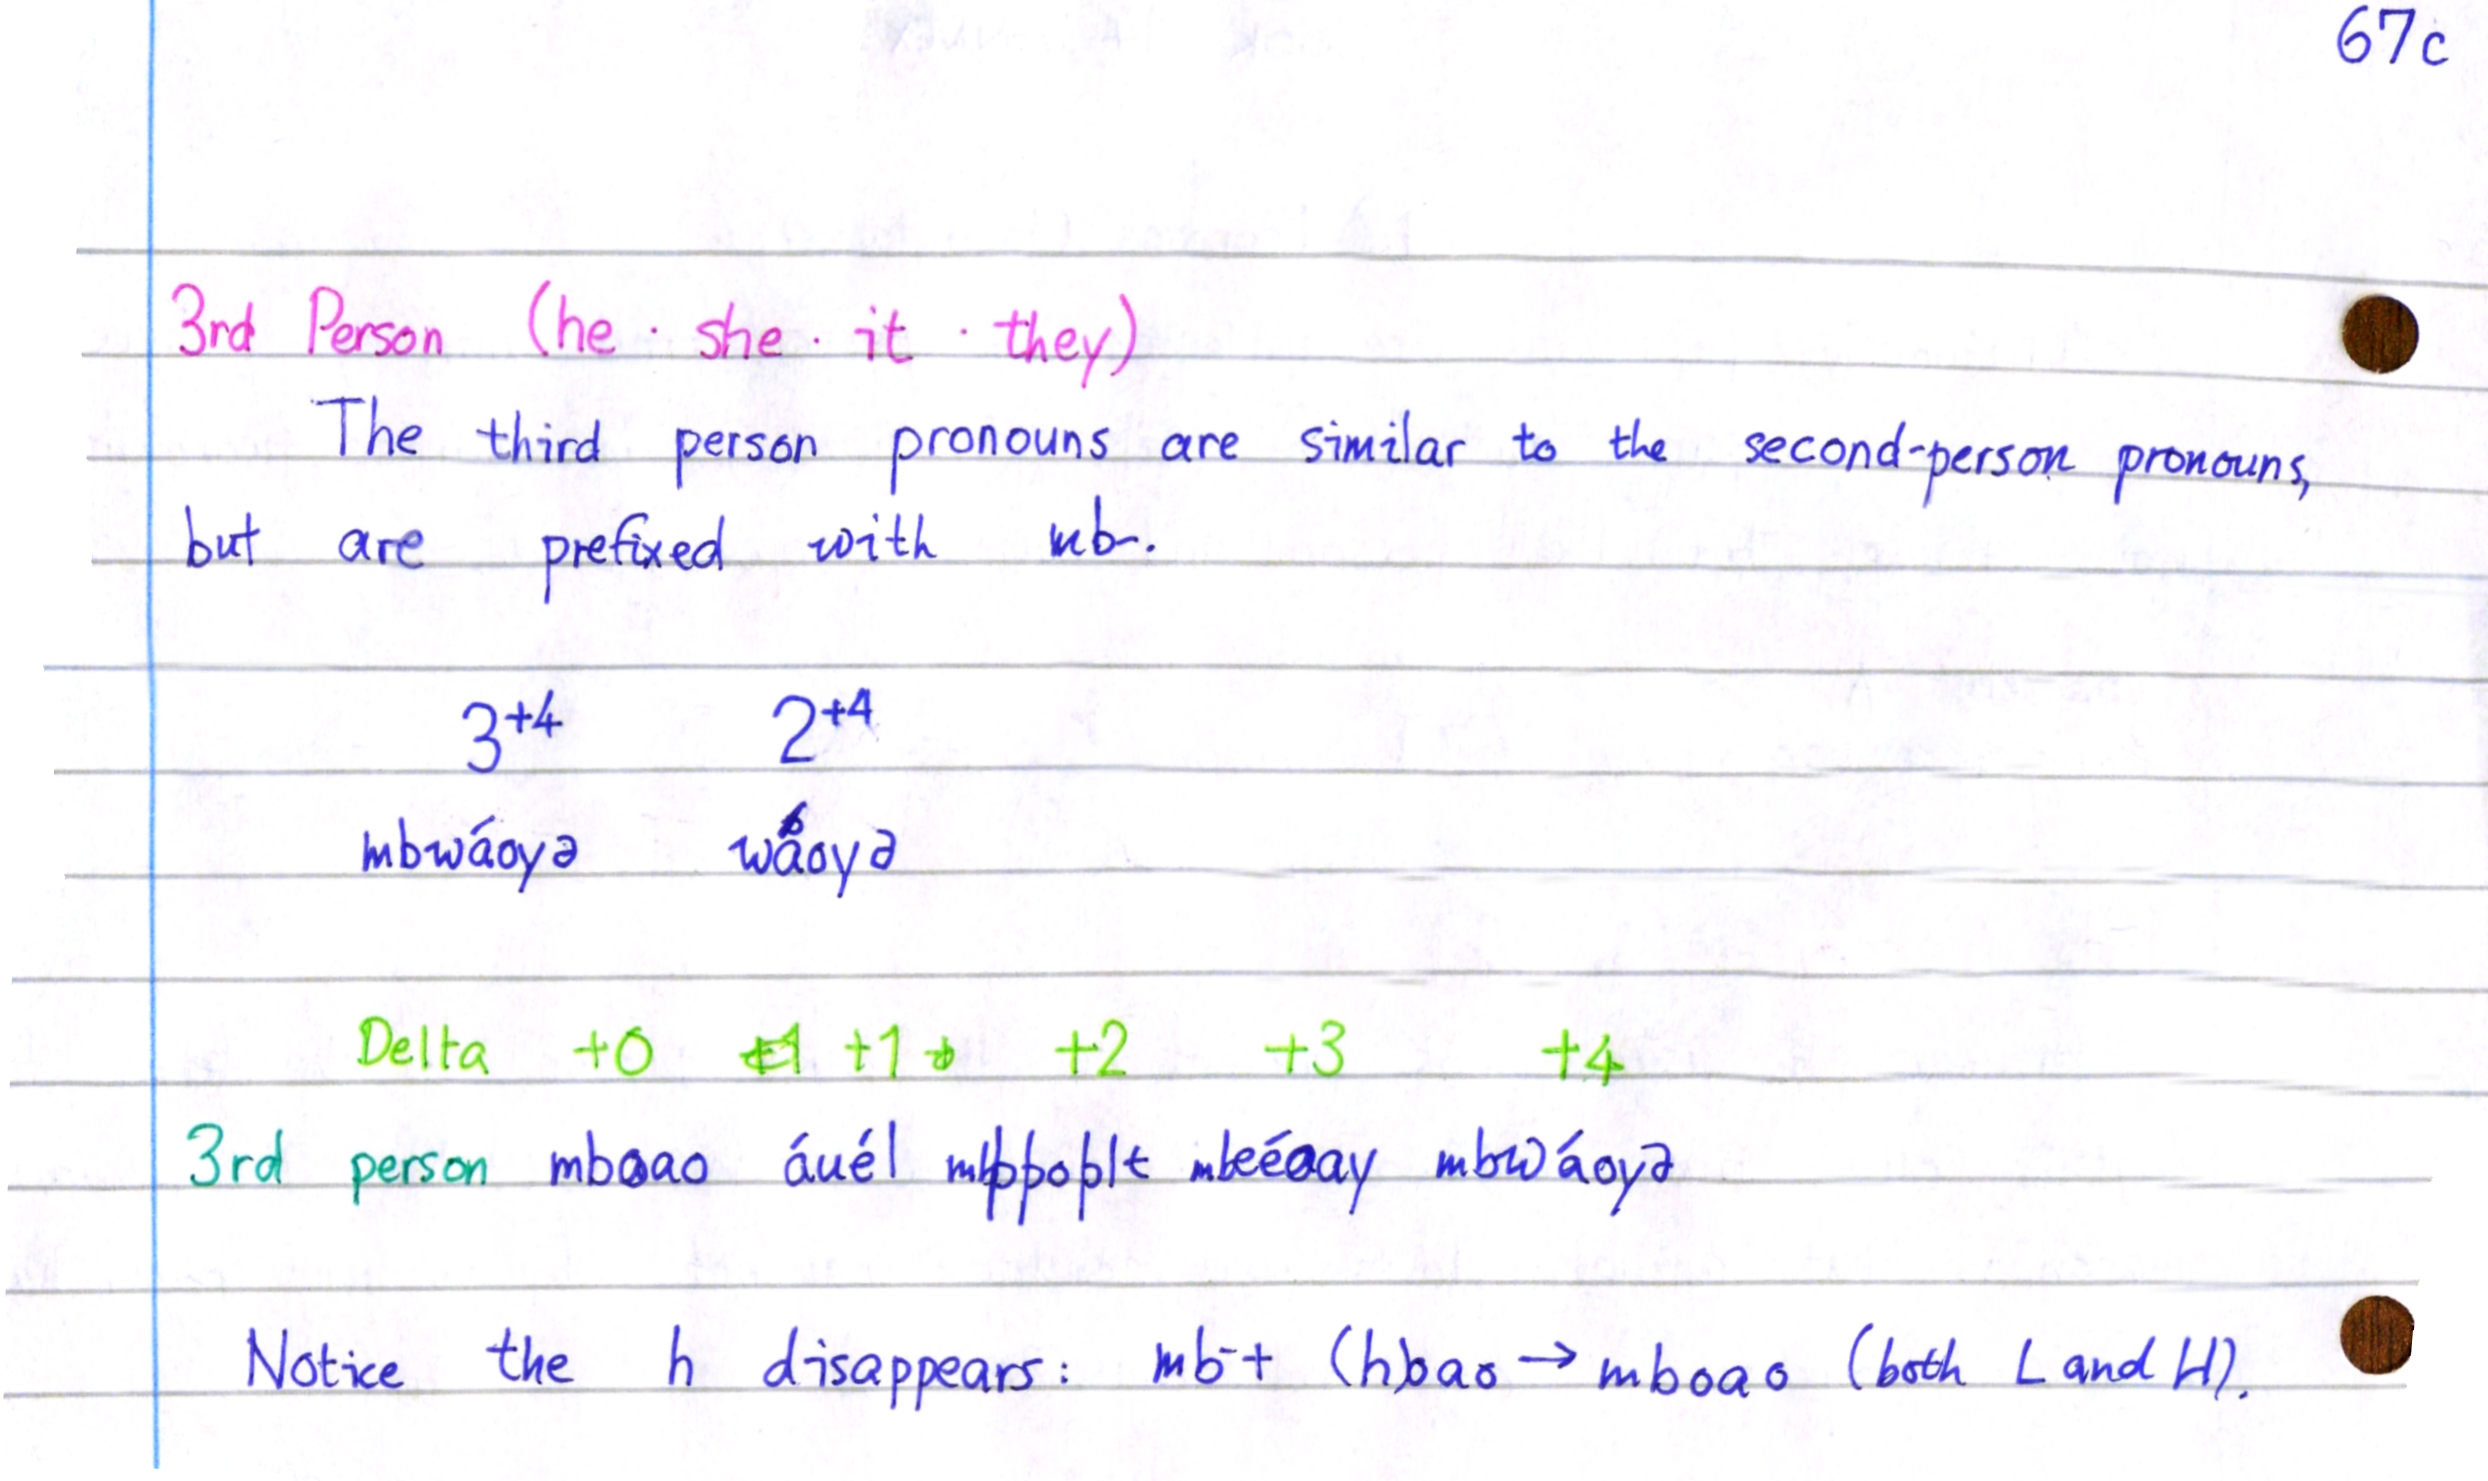 67c
3rd Person (he · she · it · they)
The third person pronouns are similar to the second-person pronouns,
but are prefixed with mb-.
3+4 2+4
mbwáoyə wáoyə
Delta +0 +1 +2 +3 +4
3rd person mboao áuél mbeéaay mbwáoyə
Notice the h disappears: mb-+ (h)oao → mboao (both L and H).